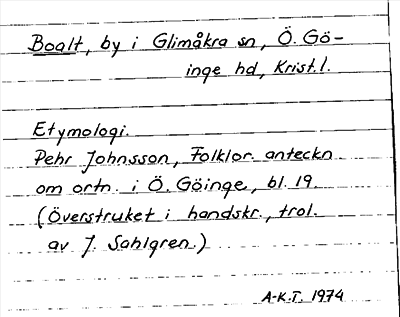 Boalt, by i Glimåkra sn, Ö. Gö-
inge hd, Krist.l.
Etymologi.
Pehr Johnsson, Folklor. anteckn
om ortn. i Ö. Göinge, bl. 19.
(Överstruket i handskr., trol.
av J. Sahlgren.)
A-K.T. 1974